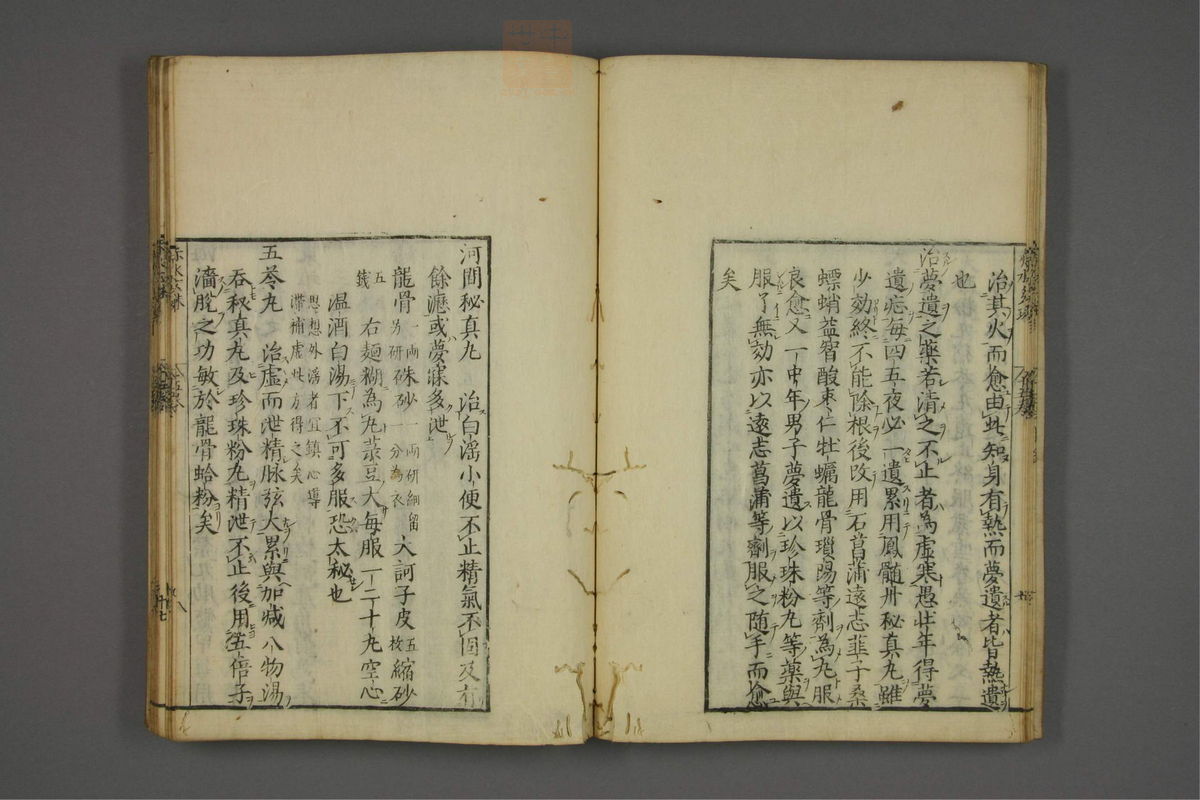 治其火而愈由此知身有熱而夢遺者皆熱遺
也
治夢遺之藥若清之不止者為虛寒愚壯年得夢
遺症每四五夜必一遺累用鳳髓丹秘真丸雖
少効終不能除根後改用石菖蒲遠志韮子桑
螵蛸益智酸棗仁牡蠣龍骨瑣陽等劑為丸服
良愈又一中年男子夢遺以珍珠粉丸等藥與
服了無効亦以遠志菖蒲等劑服之随手而愈
矣
河間秘真丸　治白淫小便不止精氣不固及有
餘瀝或夢寐多泄
龍骨一兩另研硃砂一兩研細留一分為衣大訶子皮五枚縮砂
五錢右麵糊為丸菉豆大每服一二十丸空心
温酒白湯下不可多服恐太秘也
思想外淫者宜鎮心導
滞補虛此方得之矣
五苓丸　治虛而泄精脉弦大累與加减八物湯
吞秘真丸及珍珠粉丸精泄不止後用五倍子
濇脫之功敏於龍骨蛤粉矣